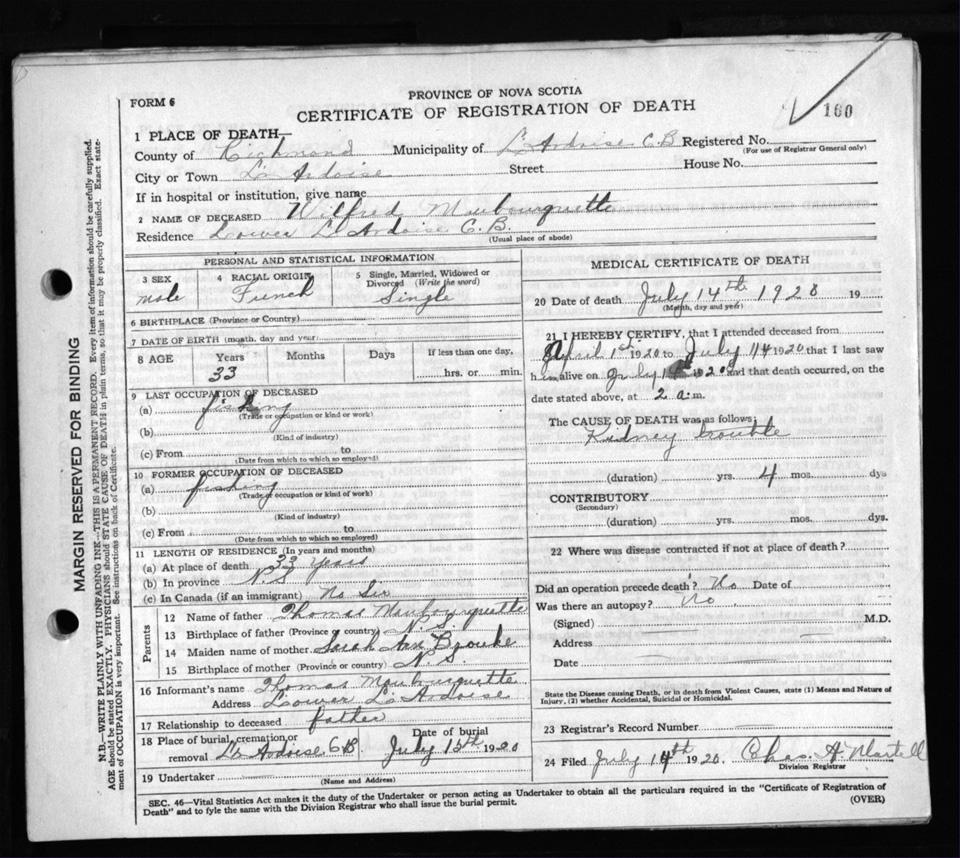 PROVINCE OF NOVA SCOTIA
FORM 6
CERTIFICATE OF REGISTRATION OF DEATH
160
1 PLACE OF DEATH—
County of Richmond Municipality of L'Ardoise C.B Registered No.
(For use of Registrar General only)
City or Town L'Ardoise Street House No.
If in hospital or institution, give name
2 NAME OF DECEASED Wilfred Maubourquette
Residence Lower L'Ardoise C.B.
(Usual place of abode)
PERSONAL AND STATISTICAL INFORMATION
3 SEX 4 RACIAL ORIGIN 5 Single, Married, Widowed or Divorced (Write the word)
male French Single
6 BIRTHPLACE (Province or Country)
7 DATE OF BIRTH (month, day and year)
8 AGE Years Months Days If less than one day,
33 hrs. or min.
9 LAST OCCUPATION OF DECEASED
(a) fishing
(Trade or occupation or kind or work)
(b)
(Kind of industry)
(c) From to
(Date from which to which so employed)
10 FORMER OCCUPATION OF DECEASED
(a) fishing
(Trade or occupation or kind of work)
(b)
(Kind of industry)
(c) From to
(Date from which to which so employed)
11 LENGTH OF RESIDENCE (In years and months)
(a) At place of death 33 years
(b) In province N.S
(c) In Canada (if an immigrant) No Sir
Parents
12 Name of father Thomas Maubourquette
13 Birthplace of father (Province or country) N.S.
14 Maiden name of mother Sarah Ann
15 Birthplace of mother (Province or country) N.S.
16 Informant's name Thomas Maubourquette
Address Lower L'Ardoise
17 Relationship to deceased father
18 Place of burial, cremation or removal L'Ardoise C B. Date of burial July 15th 1920
19 Undertaker
(Name and Address)
MEDICAL CERTIFICATE OF DEATH
20 Date of death July 14th 1928 19
(Month, day and year)
21 I HEREBY CERTIFY, that I attended deceased from
April 1st 1920 to July 14 1920 that I last saw
him alive on July 1920 and that death occurred, on the
date stated above, at 2 a.m.
The CAUSE OF DEATH was as follows:
Kidney trouble
(duration) yrs. 4 mos. dys
CONTRIBUTORY
(Secondary)
(duration) yrs. mos. dys.
22 Where was disease contracted if not at place of death?
Did an operation precede death? No Date of
Was there an autopsy? No
(Signed) M.D.
Address
Date
State the Disease causing Death, or in death from Violent Causes, state (1) Means and Nature of
Injury, (2) whether Accidental, Suicidal or Homicidal.
23 Registrar's Record Number
24 Filed July 14th 1920. Chas. A Martell
Division Registrar
SEC. 46—Vital Statistics Act makes it the duty of the Undertaker or person acting as Undertaker to obtain all the particulars required in the "Certificate of Registration of
Death" and to fyle the same with the Division Registrar who shall issue the burial permit.
(OVER)
MARGIN RESERVED FOR BINDING
N.B.—WRITE PLAINLY WITH UNFADING INK—THIS IS A PERMANENT RECORD. Every item of information should be carefully supplied.
AGE should be stated EXACTLY. PHYSICIANS should STATE CAUSE OF DEATH in plain terms, so that it may be properly classified. Exact state-
ment of OCCUPATION is very important. See instructions on back of Certificate.